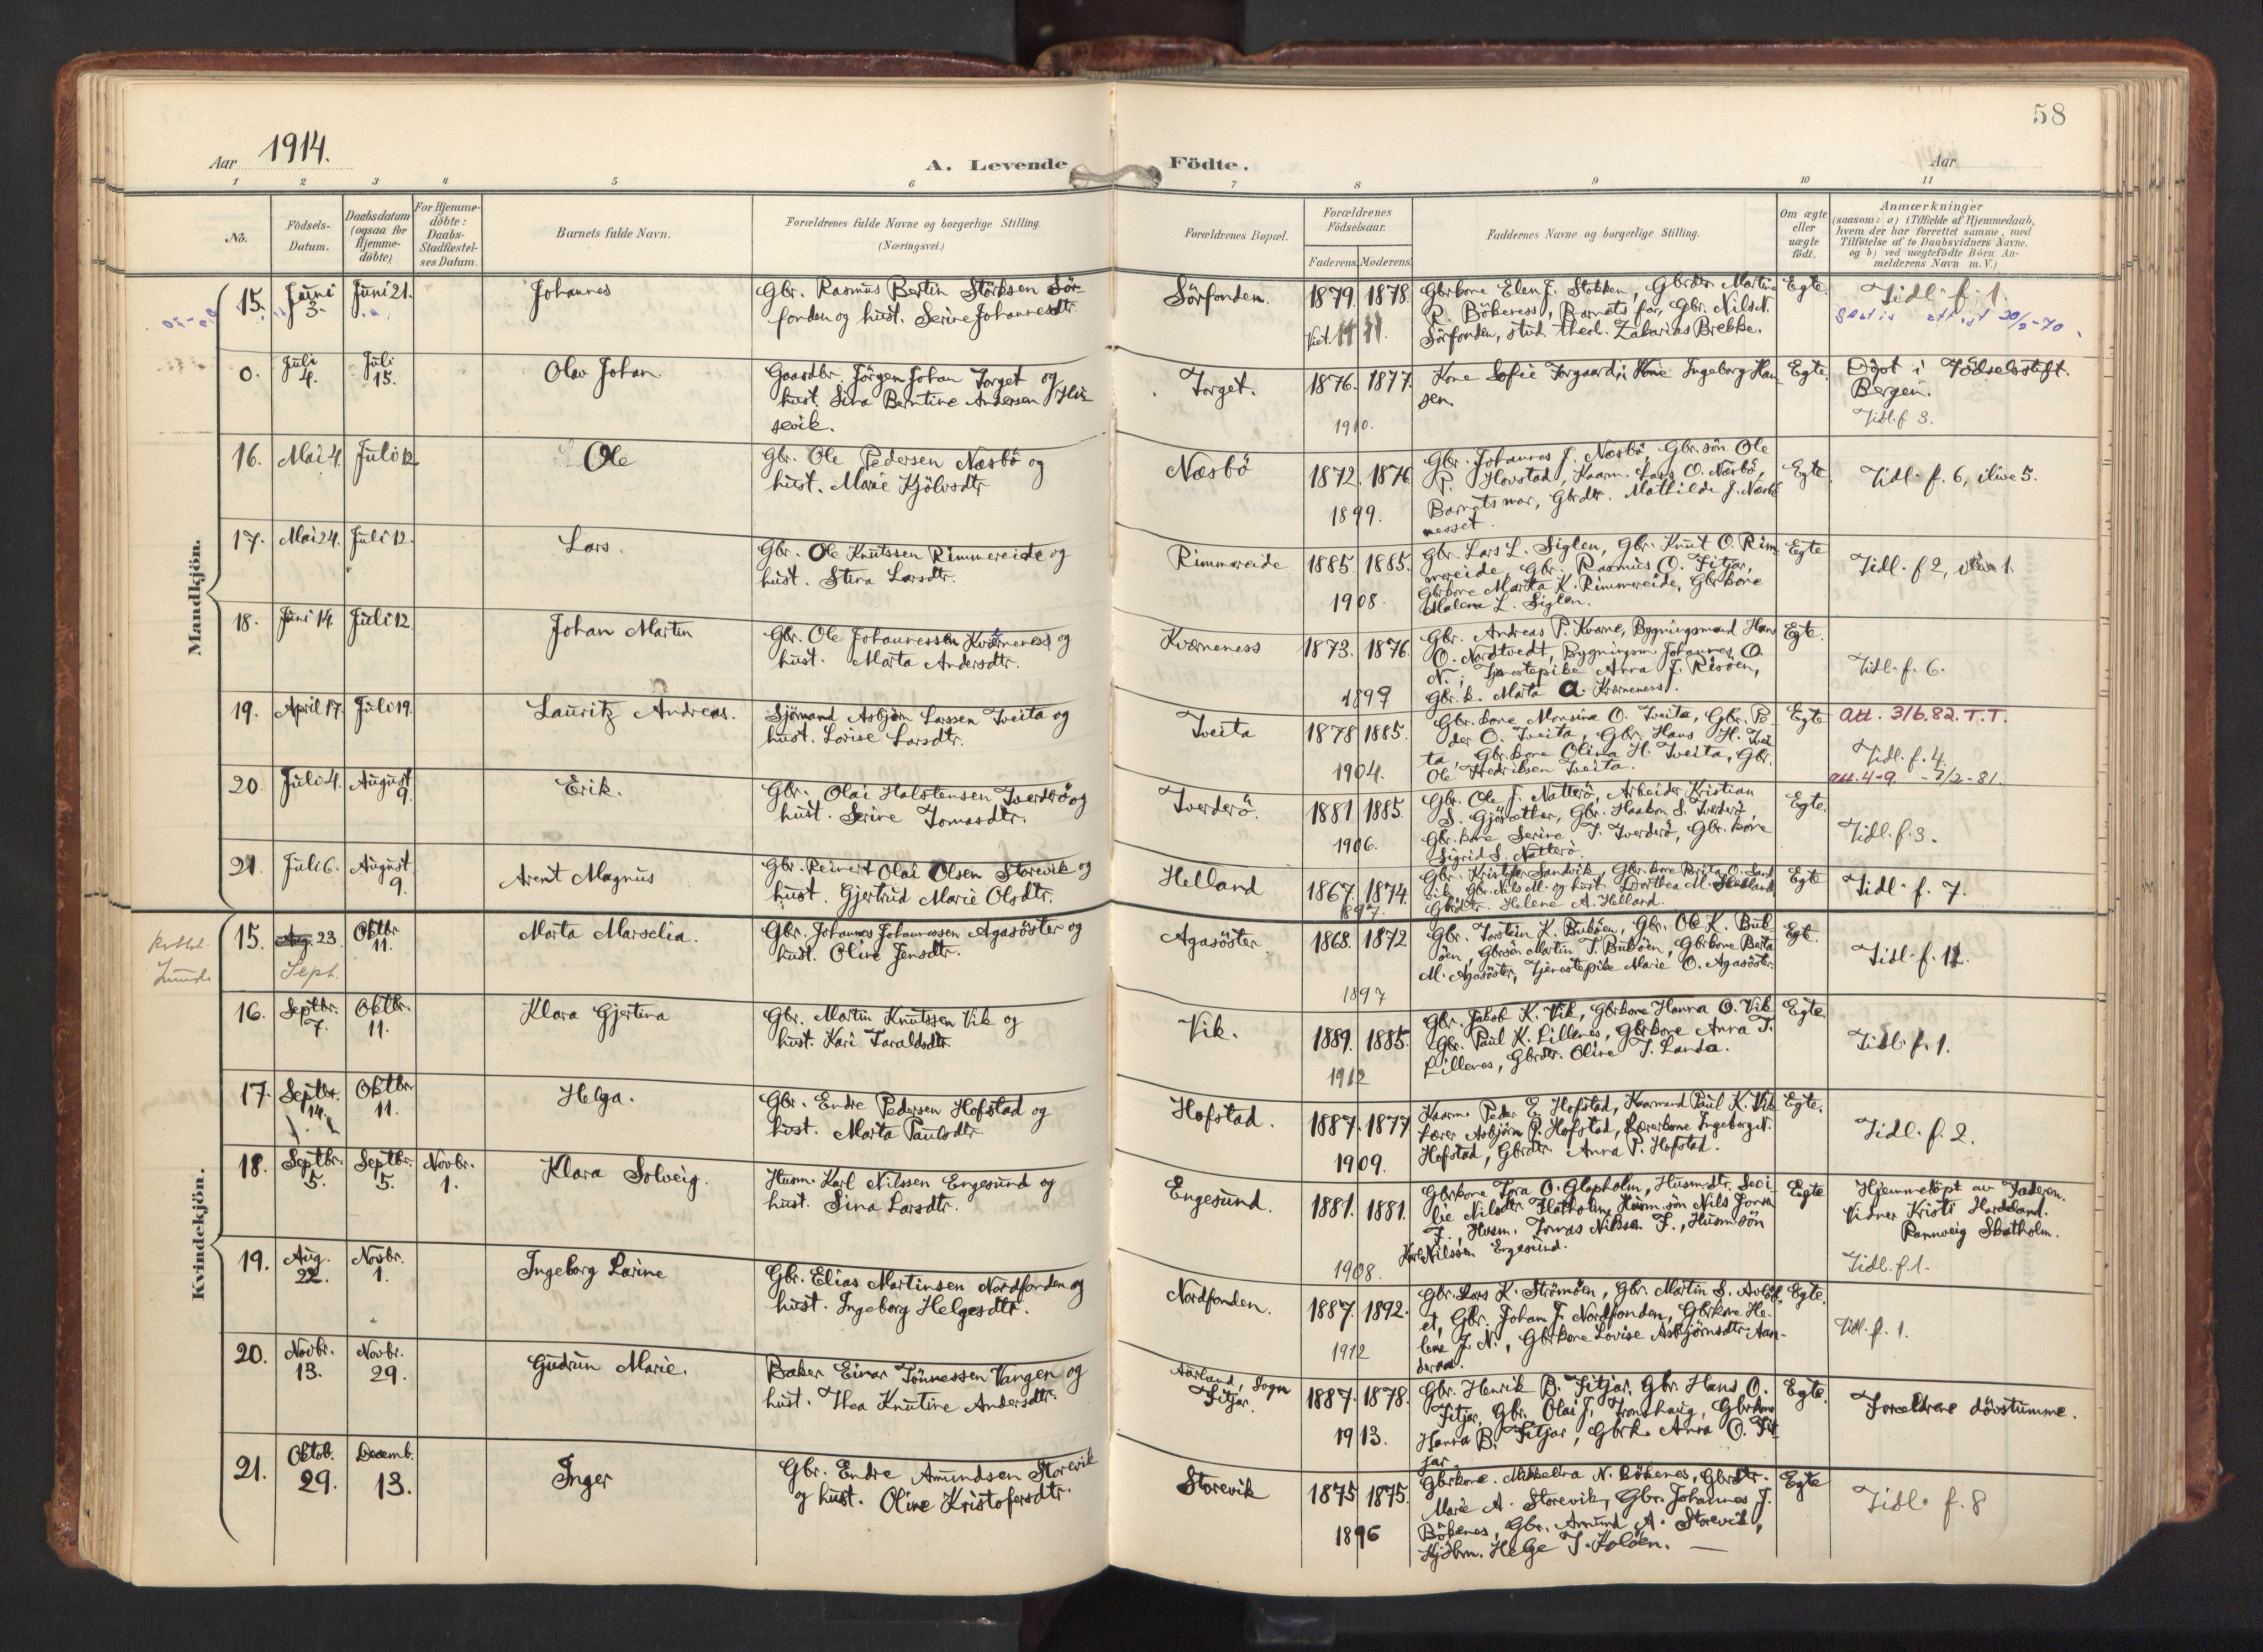 58
Aar 1914.
A. Levende Födte.
Aar
1 2 3 4 5 6 7 8 9 10 11
No.
Födsels-Datum.
Daabsdatum (ogsaa for Hjemme-döbte)
For Hjemme-döbte: Daabs-Stadfæstel-ses Datum.
Barnets fulde Navn.
Forældrenes fulde Navne og borgerlige Stilling (Næringsvei.)
Forældrenes Bopæl.
Forældrenes Födselsaar.
Faderens. Moderens.
Faddernes Navne og borgerlige Stilling.
Om ægte eller uægte födt.
Anmærkninger
(saasom: a) i Tilfælde af Hjemmedaab, hvem der har forrettet samme, med Tilföielse af to Daabsvidners Navne. og b) ved uægtefödte Börn An-melderens Navn m. V.)
Mandkjön.
15. Juni 3. Juni 21. Johannes
Gbr. Rasmus Bertin Störksen Sör-
fonden og hust. Serine Johannesdtr.
Sörfonden. 1879. 1878.
Viet. 11 11.
Gbrkone Elen J. Stokken, Gbrdtr. Martine
P. Bökeness, Barnets far, Gbr. Nils N.
Sörfonden, stud. theol. Zakarias Brekke.
Egte. Tidl. f. 1.
20/2-70
0. Juli 4. Juli 15. Olav Johan.
Gaardbr. Jörgen Johan Torget og
hust. Sina Berntine Andersen
sevik.
Torget. 1876. 1877.
1910.
Kone Sofie Torgaard; Kone Ingeborg Han-
sen.
Egte. Döpt i Födselsstift.
Bergen.
Tidl. f 3.
16. Mai 4. Juli 12. Ole
Gbr. Ole Pedersen Næsbö og
hust. Marie Kjölvsdtr
Næsbö 1872. 1876
1899.
Gbr. Johannes J. Næsbö, Gbr.sön Ole
P. Hovstad, Kaarm. Lars O. Næsbö,
Barnets mor, Gbrdtr. Mathilde J. Næsbö
nesset.
Egte. Tidl. f. 6, ilive 5.
17. Mai 24. Juli 12. Lars.
Gbr. Ole Knutssen Rimmereide og
hust. Stina Larsdtr.
Rimmereide 1885. 1885.
1908.
Gbr. Lars L. Siglen, Gbr. Knut O. Rim-
mereide, Gbr. Rasmus O. Fitjar,
Gbrkone Marta K. Rimmereide, Gbrkone
Malena L. Siglen.
Egte Tidl. f 2, ilive 1.
18. Juni 14. Juli 12 Johan Martin
Gbr. Ole Johannessen Kværneness og
hust. Marta Andersdtr.
Kværneness 1873. 1876.
1899
Gbr. Andreas P. Kværne, Bygningsmand Hans
O. Nordtvedt, Bygningsm. Johannes O.
N.; Tjenestepike Anna J. Risöen,
Gbr. k. Marta A. Kværneness.
Egte. Tidl. f. 6.
19. April 17. Juli 19. Lauritz Andreas.
Sjömand Asbjörn Larssen Tveita og
hust. Lovise Larsdtr.
Tveita 1878 1885.
1904.
Gbr. kone Monsina O. Tveita, Gbr. Pe-
der O. Tveita, Gbr. Hans H. Tvei-
ta, Gbr.kone Olina H. Tveita, Gbr.
Ole Hedriksen Tveita.
Egte Att. 3/6.82. T.T.
Tidl. f. 4.
att. 4-9. - 7/2-81.
20. Juli 4. August 9. Erik.
Gbr. Olai Halstensen Tverderö og
hust. Serine Tomasdtr.
Tverderö. 1881 1885.
1906.
Gbr. Ole J. Natterö, Arbeider Kristian
S. Gjösæther, Gbr. Haakon S. Tverderö,
Gbr. kone Serine T. Tverderö, Gbr. kone
Sigrid S. Natterö.
Egte. Tidl. f. 3.
21. Juli 6. August 9. Arent Magnus
Gbr. Reinert Olai Olsen Storevik og
hust. Gjertrud Marie Olsdtr.
Helland 1867. 1874.
1897.
Gbr. Kristofer Sandvik, Gbr.kone Brita O. Sand-
vik, Gbr. Nils M. og hust. Dorthea M. Helland
Gbrdtr. Helene A. Helland.
Egte Tidl. f. 7.
Kvindekjön.
15. Aug. 23. Sept. Oktbr. 11. Marta Marselia.
Gbr. Johannes Johannessen Agasöster og
hust. Oline Jensdtr.
Agasöster 1868. 1872
1897
Gbr. Torstein K. Buköen, Gbr. Ole K. Buk-
öen, Gbrsön Martin T. Buköen, Gbrkone Berta
M. Agasöster, Tjenestepike Marie O. Agasöster.
Egt. Tidl. f. 12.
16. Septbr. 7. Oktbr. 11. Klara Gjertina
Gbr. Martin Knutssen Vik og
hust. Kari Taraldsdtr.
Vik. 1889. 1885.
1912
Gbr. Jakob K. Vik, Gbrkone Hanna O. Vik
Gbr. Paul K. Lillenes, Gbrkone Anna T.
Lillenes, Gbrdtr. Oline T. Landa.
Egte. Tidl. f. 1.
17. Septbr. 14. Oktbr. 11. Helga.
Gbr. Endre Pedersen Hofstad og
hust. Marta Paulsdtr
Hofstad. 1887. 1877
1909.
Kaarm. Peder E. Hofstad, Kaarmand Paul K. Vik
Lærer Asbjörn P. Hofstad, Lærerkone Ingeborg N.
Hofstad, Gbrdtr. Anna P. Hofstad.
Egte. Tidl. f. 2.
18. Septbr. 5. Septbr. 5. Novbr. 1. Klara Solveig.
Husm. Karl Nilssen Engesund og
hust. Sina Larsdtr.
Engesund. 1881. 1881.
1908.
Gbrkone Tora O. Glopholm, Husm.dtr. Seci-
lie Nilsdtr. Flatholm, Husm.sön Nils
F., Husm. Tomas Nilssen F., Husm.sön
Karl Nilssen Engesund.
Egte Hjemmedöpt av Faderen.
Vidner Kristi Hardeland.
Rannveig Skatholm.
Tidl. f. 1.
19. Aug. 22. Novbr. 1. Ingeborg Larine
Gbr. Elias Martinsen Nordfonden og
hust. Ingeborg Helgesdtr.
Nordfonden. 1887. 1892.
1912
Gbr. Lars K. Strömöen, Gbr. Martin S.
et, Gbr. Johan J. Nordfonden, Gbrkone He-
lene J. N., Gbrkone Lovise Asbjörnsdtr. Aan-
deraa.
Egte. Tidl. f. 1.
20. Novbr. 13. Novbr. 29. Gudrun Marie.
Baker Einar Tönnessen Vangen og
hust. Thea Knutine Andersdtr.
Aurland, Sogn
Fitjar. 1887. 1878.
1913.
Gbr. Henrik B. Fitjar, Gbr. Hans O.
Fitjar, Gbr. Olai J. Tronshaug, Gbrkone
Hanna B. Fitjar, Gbrk. Anna O. Fit-
jar.
Egte. Forældrene dövstumme.
21. Oktob. 29. Decemb. 13. Inger
Gbr. Endre Amundsen Storevik
og hust. Oline Kristofersdtr.
Storevik 1875 1875.
1896
Gbrkone. Mikkelina N. Bökenes, Gbrdtr.
Marie A. Storevik, Gbr. Johannes J.
Bökenes, Gbr. Amund A. Storevik,
Kjöbm. Helge T. Koløen.
Egte Tidl. f. 8